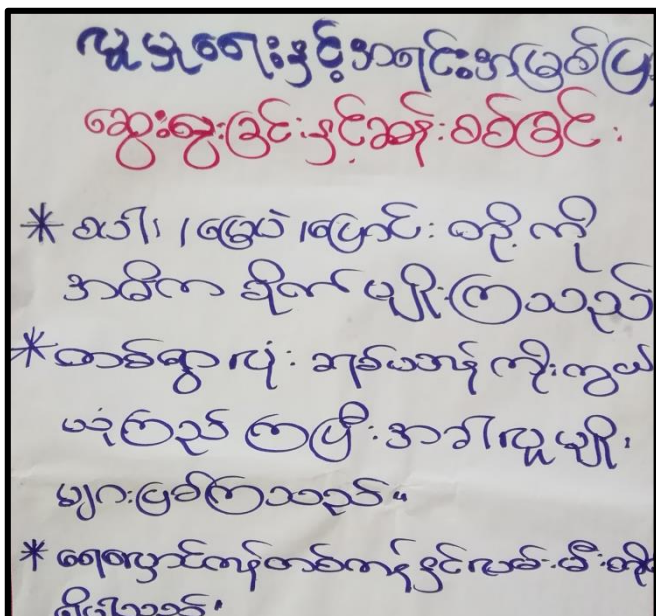 လူမှုရေးနှင့်အရင်းအမြစ်ပြ
ဆွေးနွေးခြင်းနှင့်ဆန်းစစ်ခြင်း
* စပါး၊ မြေပဲ၊ ပြောင်း တို့ကို
အဓိက စိုက်ပျိုးကြသည်
* တစ်ရွာလုံး ခရစ်ယာန် ကိုးကွယ်
ယုံကြည် ကြပြီး အခါလူမျိုး
များဖြစ်ကြသည်။
* ရေလှောင်ကန်တစ်ကန်နှင့်လမ်းမီးတို့
ရှိပါသည်